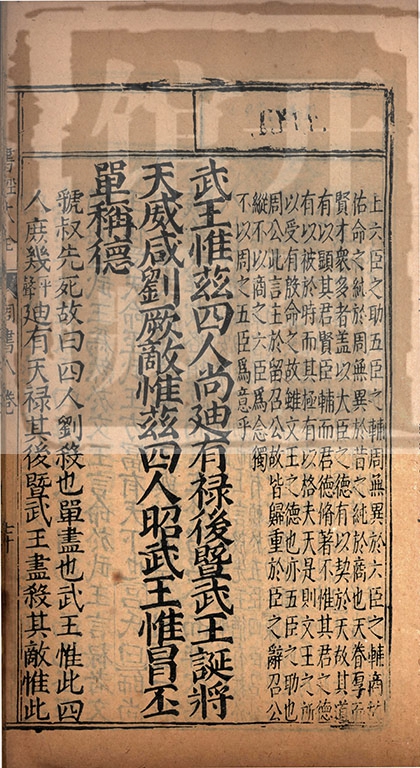 上六臣之助五臣之輔周無異於六臣之輔商故
佑命之純於周無異於昔之純於商也天眷而
賢才衆多者蓋以大臣之德有以契於天故其道
有以顯其君賢臣輔而君德脩著不惟其君之德
有以被於時而其極有以格夫天是則文王之所
以受有殷命之故雖文王之德也亦五臣之助也
周公此言主於留召公故皆歸重於臣之辭召公
縱不以商之六臣爲念獨
不以周之五臣爲意乎
武王惟茲四人尚迪有禄後暨武王誕將
天威咸劉厥敵惟茲四人昭武王惟冒丕
單稱德
虢叔先死故曰四人劉殺也單盡也武王惟此四
人庶幾平聲迪有天禄其後暨武王盡殺其敵惟此
周書八卷